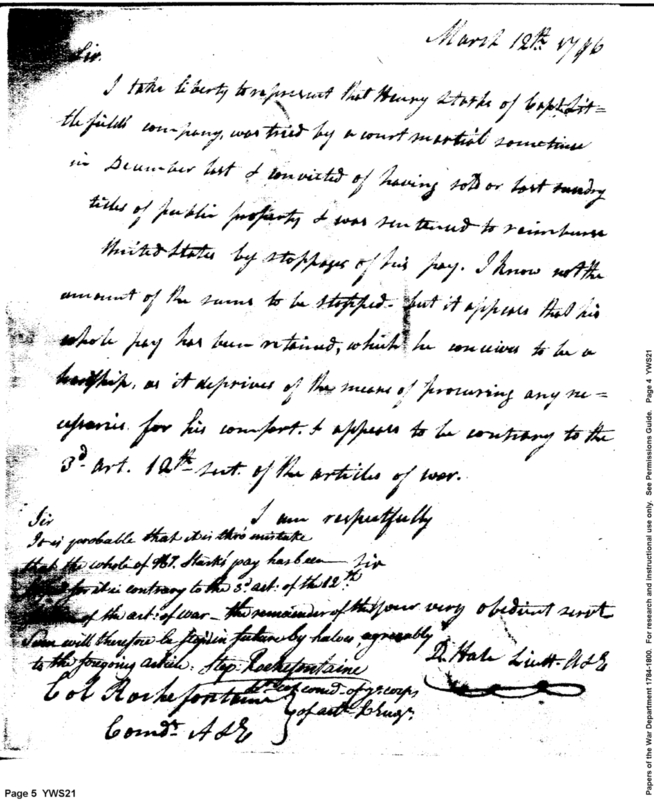 March 12th. 1796
Sir.
I take liberty to represent that Henry Starke of Capt. Lit=
tlefields company, was tried by a court martial sometime
in December last & convicted of having sold or lost sundry
ticles of public property & was sentenced to reimburse
United States by stoppages of his pay. I know not the
amount of the sums to be stopped - but it appears that his
whole pay has been retained, which he conceives to be a
hardship, as it deprives of the means of procuring any ne=
cessaries for his comfort. & appears to be contrary to the
3d. art. 12th sect. of the articles of war.
I am respectfully
Sir
your very obedient servt
D. Hale Lieut. A&E
Sir
It is probable that it is thro' mistake
that the whole of Starke's pay has been
for it is contrary to the 3d. art: of the 12th
of the art: of war - the remainder of the
Sum will therefore be stop'd in future by halves agreeably
to the foregoing article. Step. Rochefontaine
comd. of ye corps
of art. & Engr.
Col Rochefontaine
Comdr. A&E
Page 5 YWS21
Papers of the War Department 1784-1800. For research and instructional use only. See Permissions Guide. Page 4 YWS21